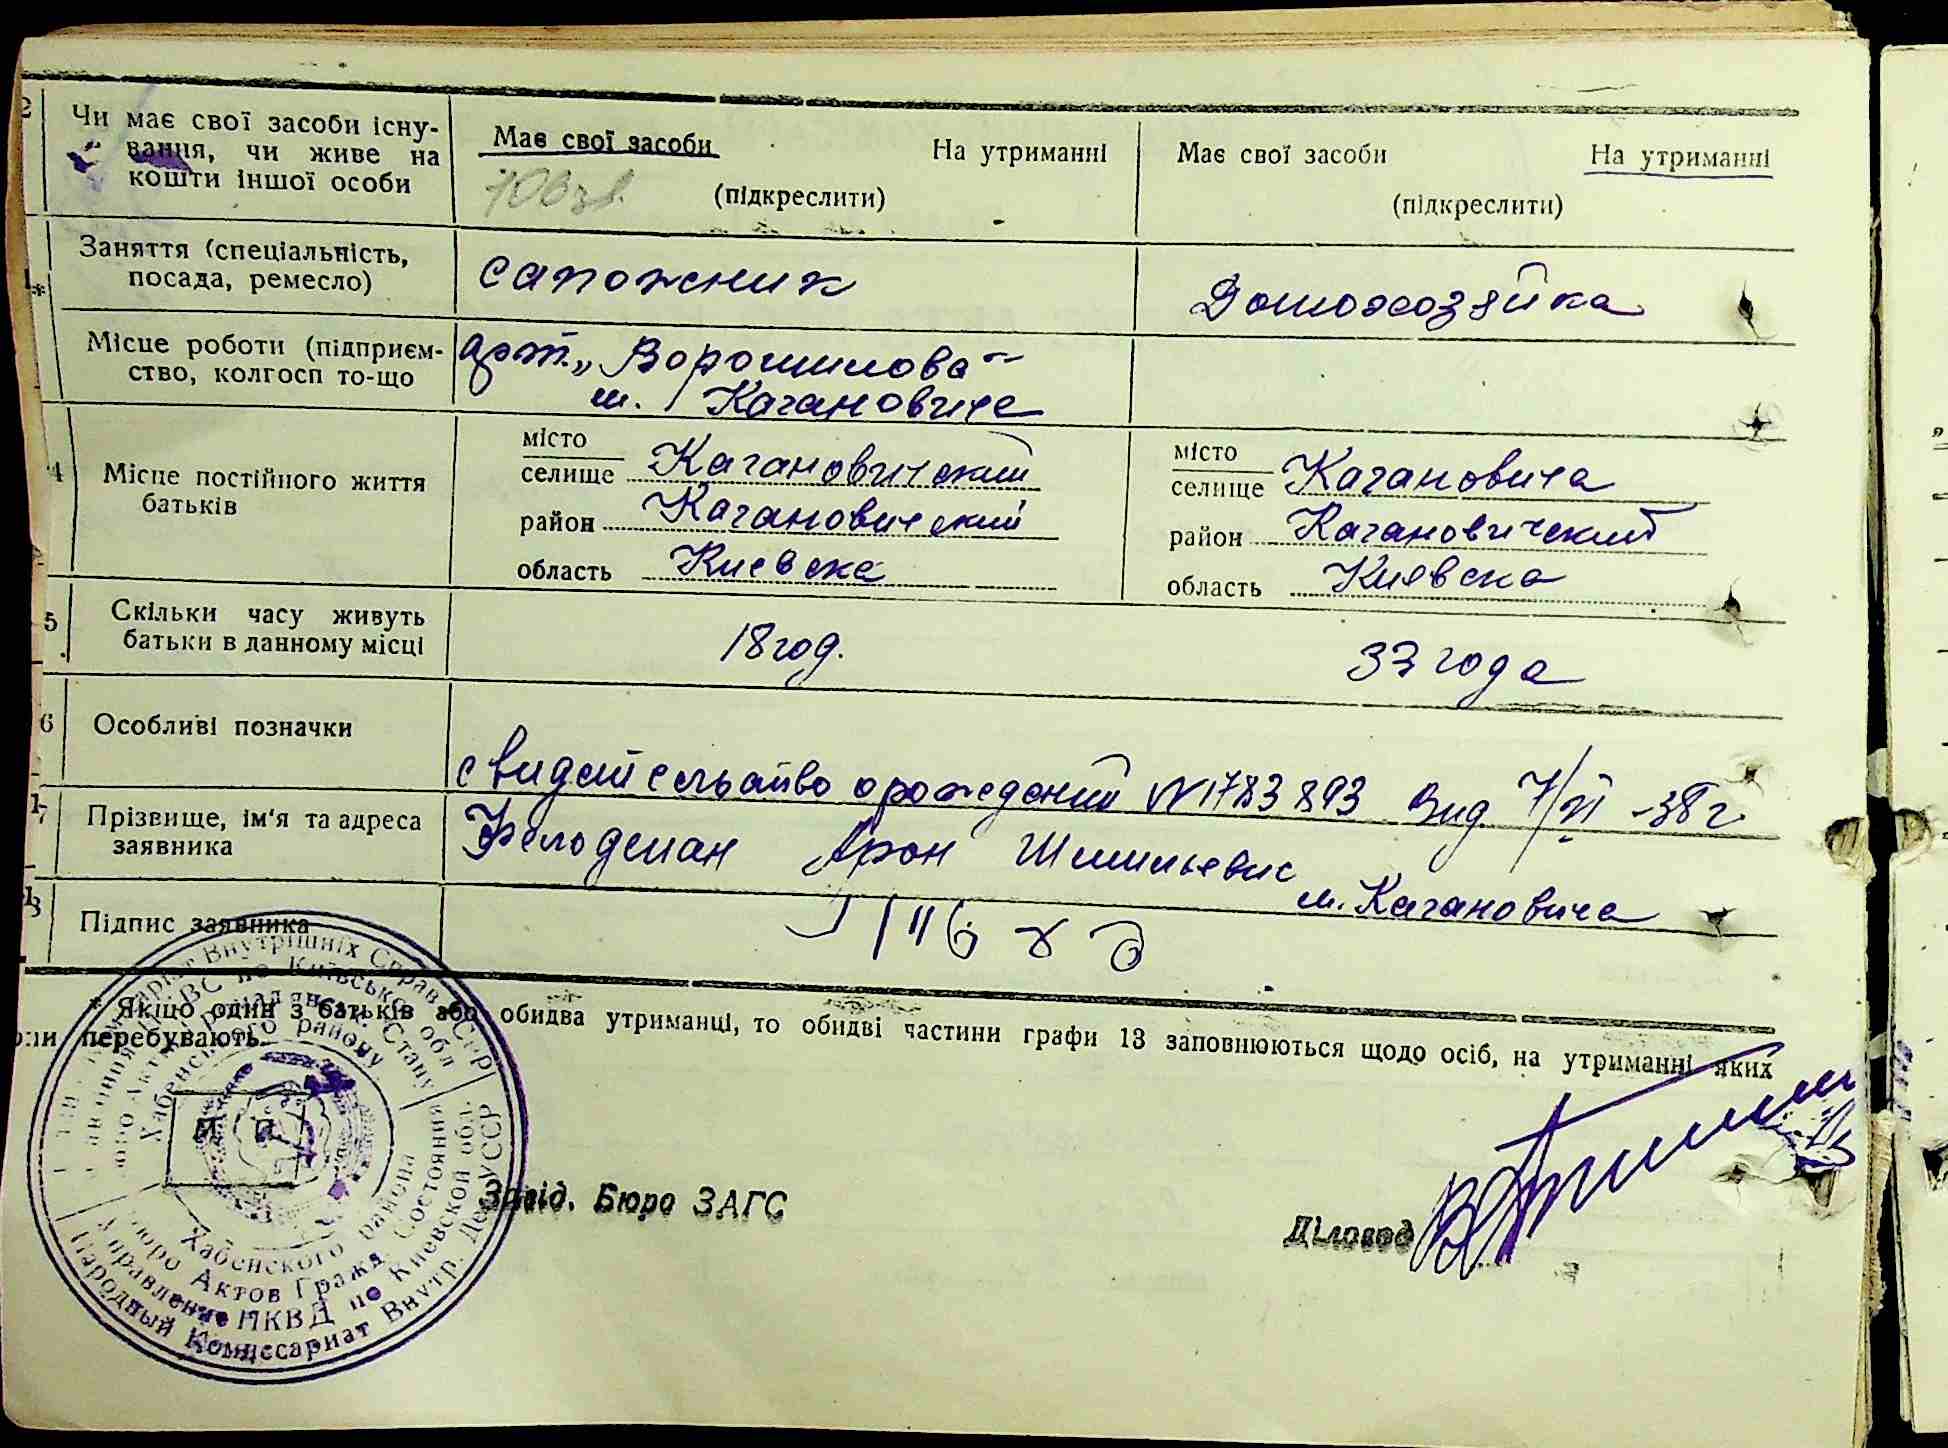 2
Чи має свої засоби існу-
вання, чи живе на
кошти іншої особи
Має свої засоби На утриманні
(підкреслити)
Має свої засоби На утриманні
(підкреслити)
Заняття (спеціальність,
посада, ремесло)
сапожник
Домохозяйка
Місце роботи (підприєм-
ство, колгосп то-що
арт. „Ворошилова"
м. Кагановиче
4
Місце постійного життя
батьків
місто
селище Кагановический
район Кагановический
область Киевска
місто
селище Кагановича
район Кагановический
область Киевска
5
Скільки часу живуть
батьки в данному місці
18 год.
33 года
6
Особливі позначки
свидетельство о рождений N 1783893 Выд. 7/VI -38 г.
17
Прізвище, ім'я та адреса
заявника
Фельдман Арон Шмильевис
м. Кагановича
18
Підпис заявника
* Якщо один з батьків або обидва утриманці, то обидві частини графи 13 заповнюються щодо осіб, на утриманні яких
перебувають.
М П
Внутрішніх Справ УССР
по Київській обл
Хабенського району
Хабенского района
Бюро Актов Гражд. Состояний
Управление НКВД по Киевской обл.
Народный Комиссариат Внутр. Дел УССР
Завід. Бюро ЗАГС
Діловод